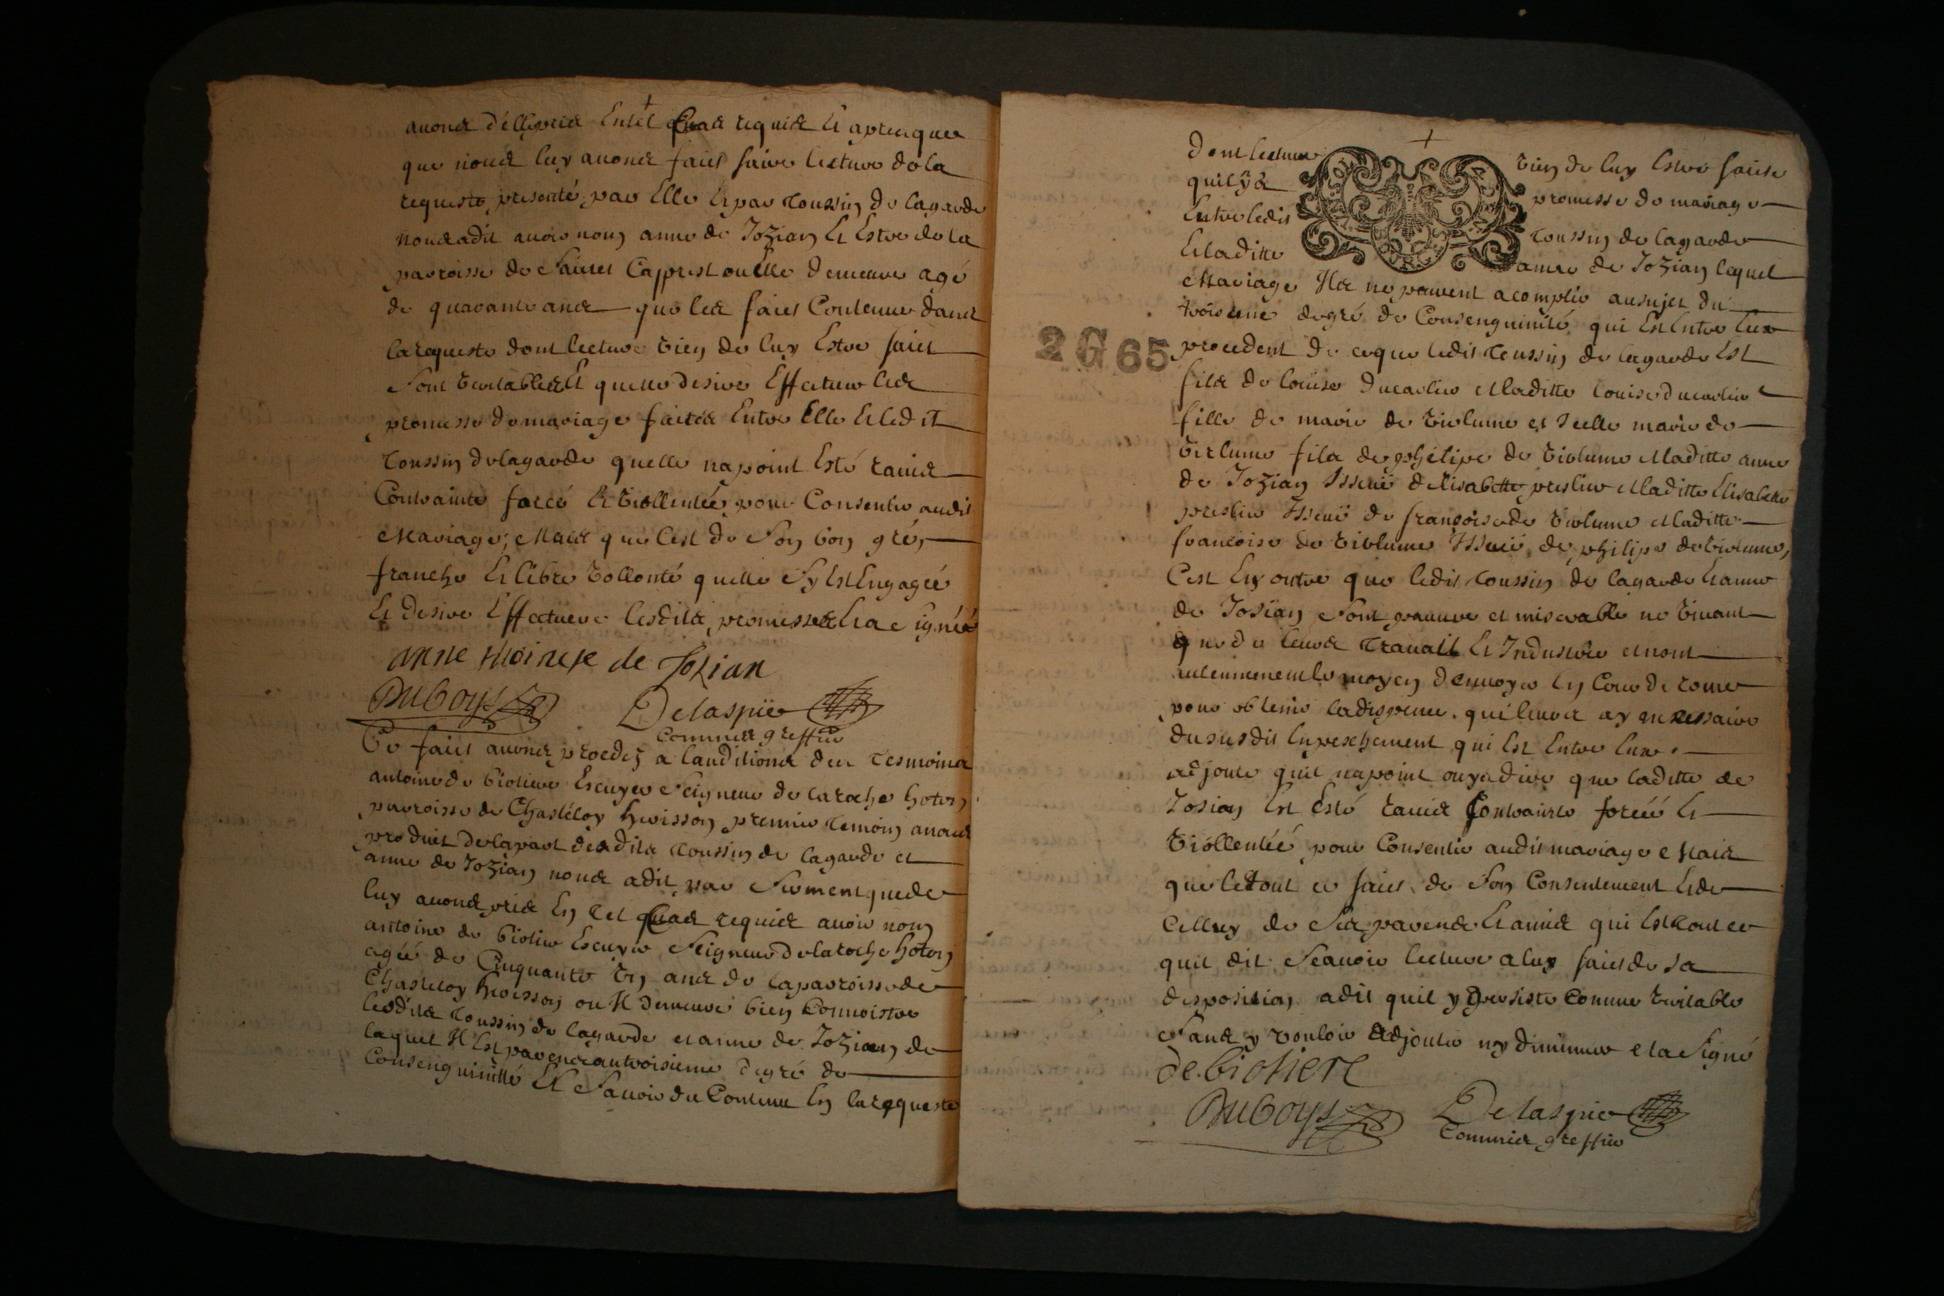 avons d'elle pris En tel cas requis Et apres que
que nous luy avons fait faire lecture de la
requeste presenté par Elle Et par toussin de lagarde
nous a dit avoir nom anne de Jozian Et Estre de la
parroisse de Saint Cappres ou Elle demeure agé
de quarante ans que les faits Contenus dans
la requeste dont lecture vien de luy Estre fait
Sont veritables Et quelle desire Effectuer les
promesse de mariage faites Entre Elle Et ledit
toussin de lagarde quelle na point Esté ravis
Contrainte forcé Et viollentée pour Consentir audit
Mariage, Mais que C'est de Son bon gré,
franche Et libre vollonté quelle Sy Est Engagée
Et desire Effectuere lesdits promesses Et a Signée
anne de Jozian
Duboys Delaspie
Commis greffier
Ce fait avons procedez a l'auditions des tesmoins
antoine de biotiere Escuyer Seigneur de la roche
parroisse de Chasteloy herisson premier temoin avons
produit de la part desdits toussin de lagarde et
anne de Jozian nous a dit par Serment que de
luy avons pris En tel cas requis avoir nom
antoine de biotier Escuyer Seigneur de la roche
agéé de Cinquante un ans de la parroisse de
Chasteloy herisson ou Il demeure bien Connoistre
lesdits toussin de lagarde et anne de Jozian de
laquel Il Est parens au troisieme degré de
Consenguinitté Et Sauoir du Contenu En la requeste
dont lecture vien de luy Estre faite
quil y a promesse de mariage
Entre ledit toussin de lagarde
Et laditte anne de Jozian lequel
Mariage Ils ne peuvent acomplir au sujet du
troisieme degré de Consenguinité qui Est Entre Eux
procedent de ce que ledit toussin de lagarde Est
fils de louise ducarlier Et laditte louise ducarlier
fille de marie de violume et Icelle marie de
violume fila de phelipe de violume Et laditte anne
de Jozian Issue d'elisabette preslier Et laditte Elisabette
preslier Issuë de françoise de violume Et laditte
francoise de violume Issuë de philipe de violume,
C'est En outre que ledit toussin de lagarde Et anne
de Josian Sont pauvre et miserable ne vivant
que de leurs travail Et Industrie et nont
aulcunement le moyen d'envoyer En Cour de rome
pour obtenir la dispence qui leurs ay necessaire
du susdit Enpeschement qui Est Entre Eux.
adjoute quil na point ouy dire que laditte de
Josian Est Esté ravis Contrainte forcéé Et
viollentéé pour Consentir audit mariage Mais
que le tout ce fait de Son Consentement Et de
Celluy de Ses parens Et amis qui Est tout ce
quil dit Scavoir lecture a luy fait de sa
desposition a dit quil y persiste Comme veritable
Sans y vouloir adjouter ny diminuer Et a Signé
de biotiere
Duboys Delaspie
Commis greffier
2 G 65